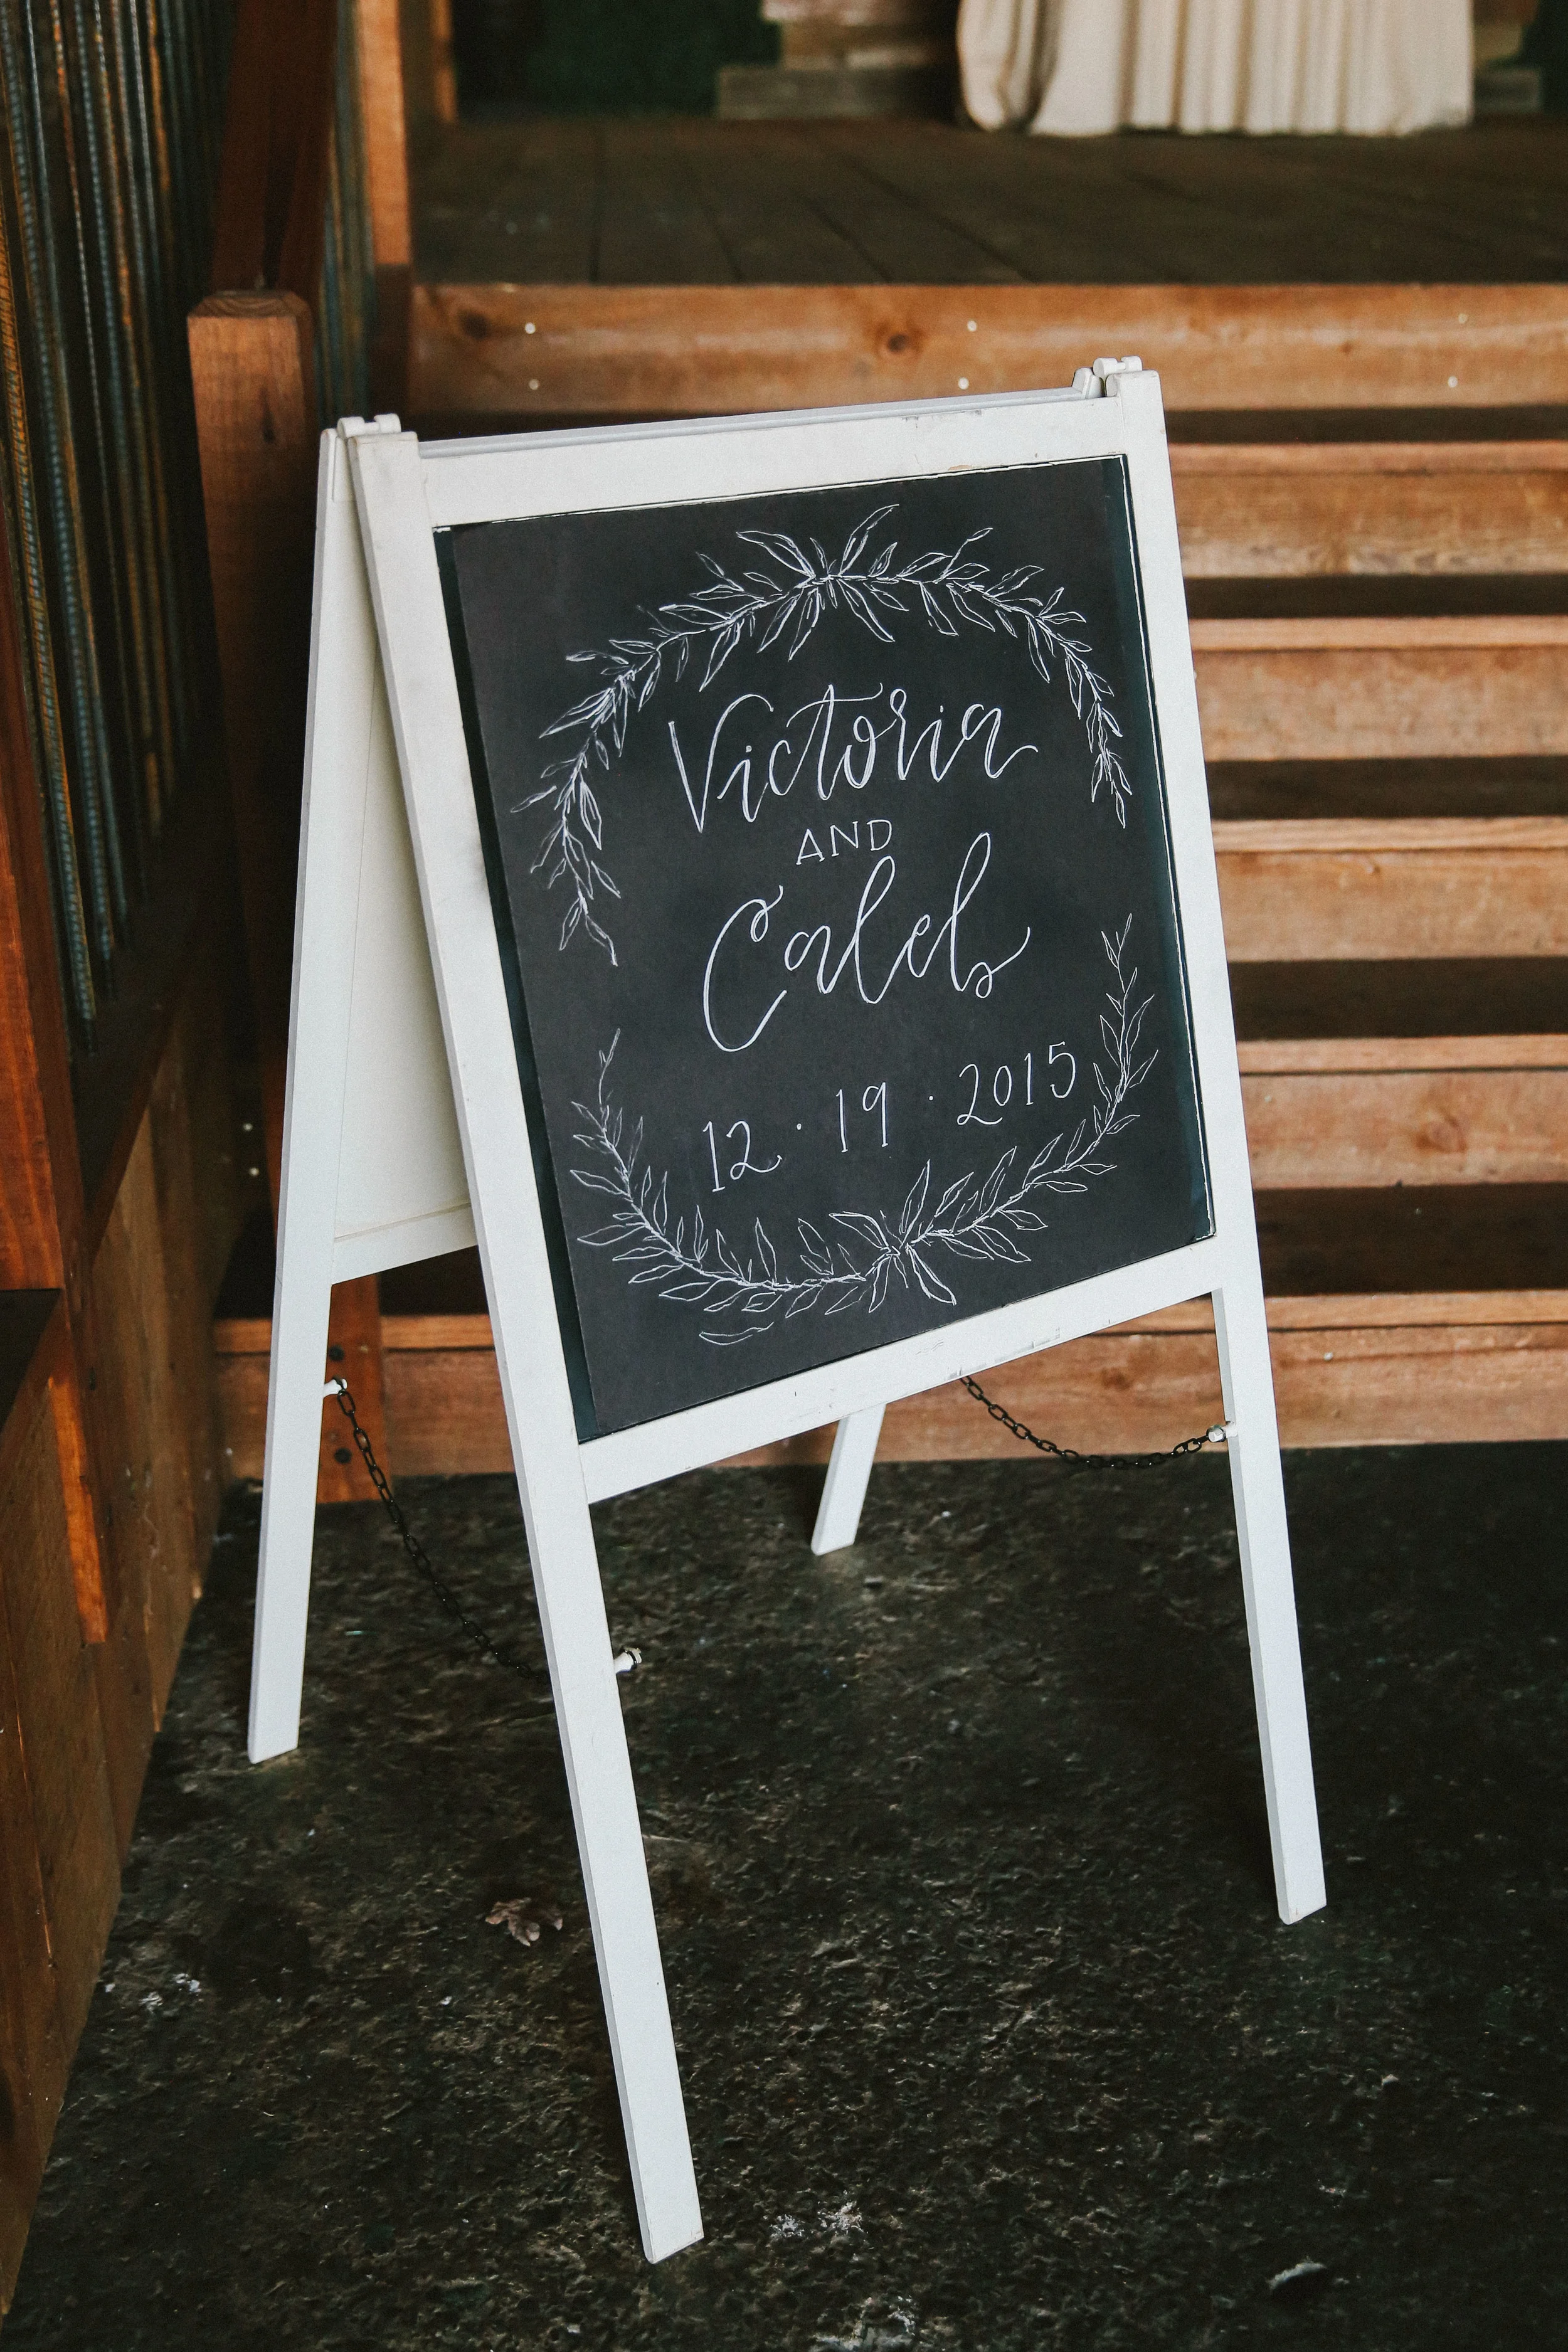 Victoria
AND
Caleb
12 · 19 · 2015